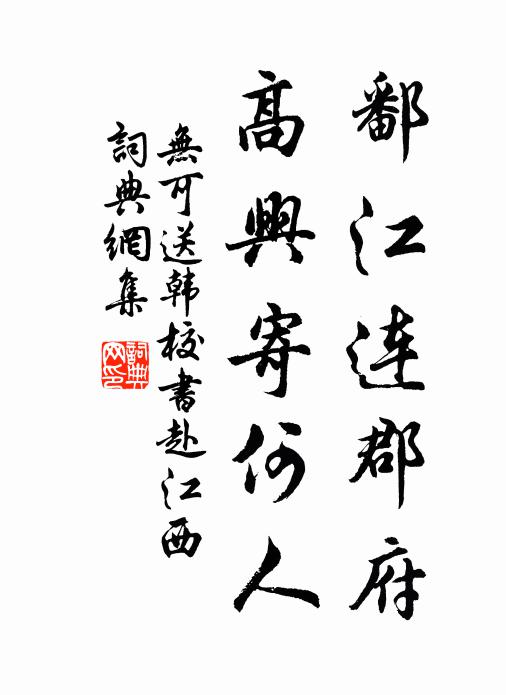 鄱江连郡府
高興寄何人
無可送韩校書赴江西
詞典網集
詞典网印